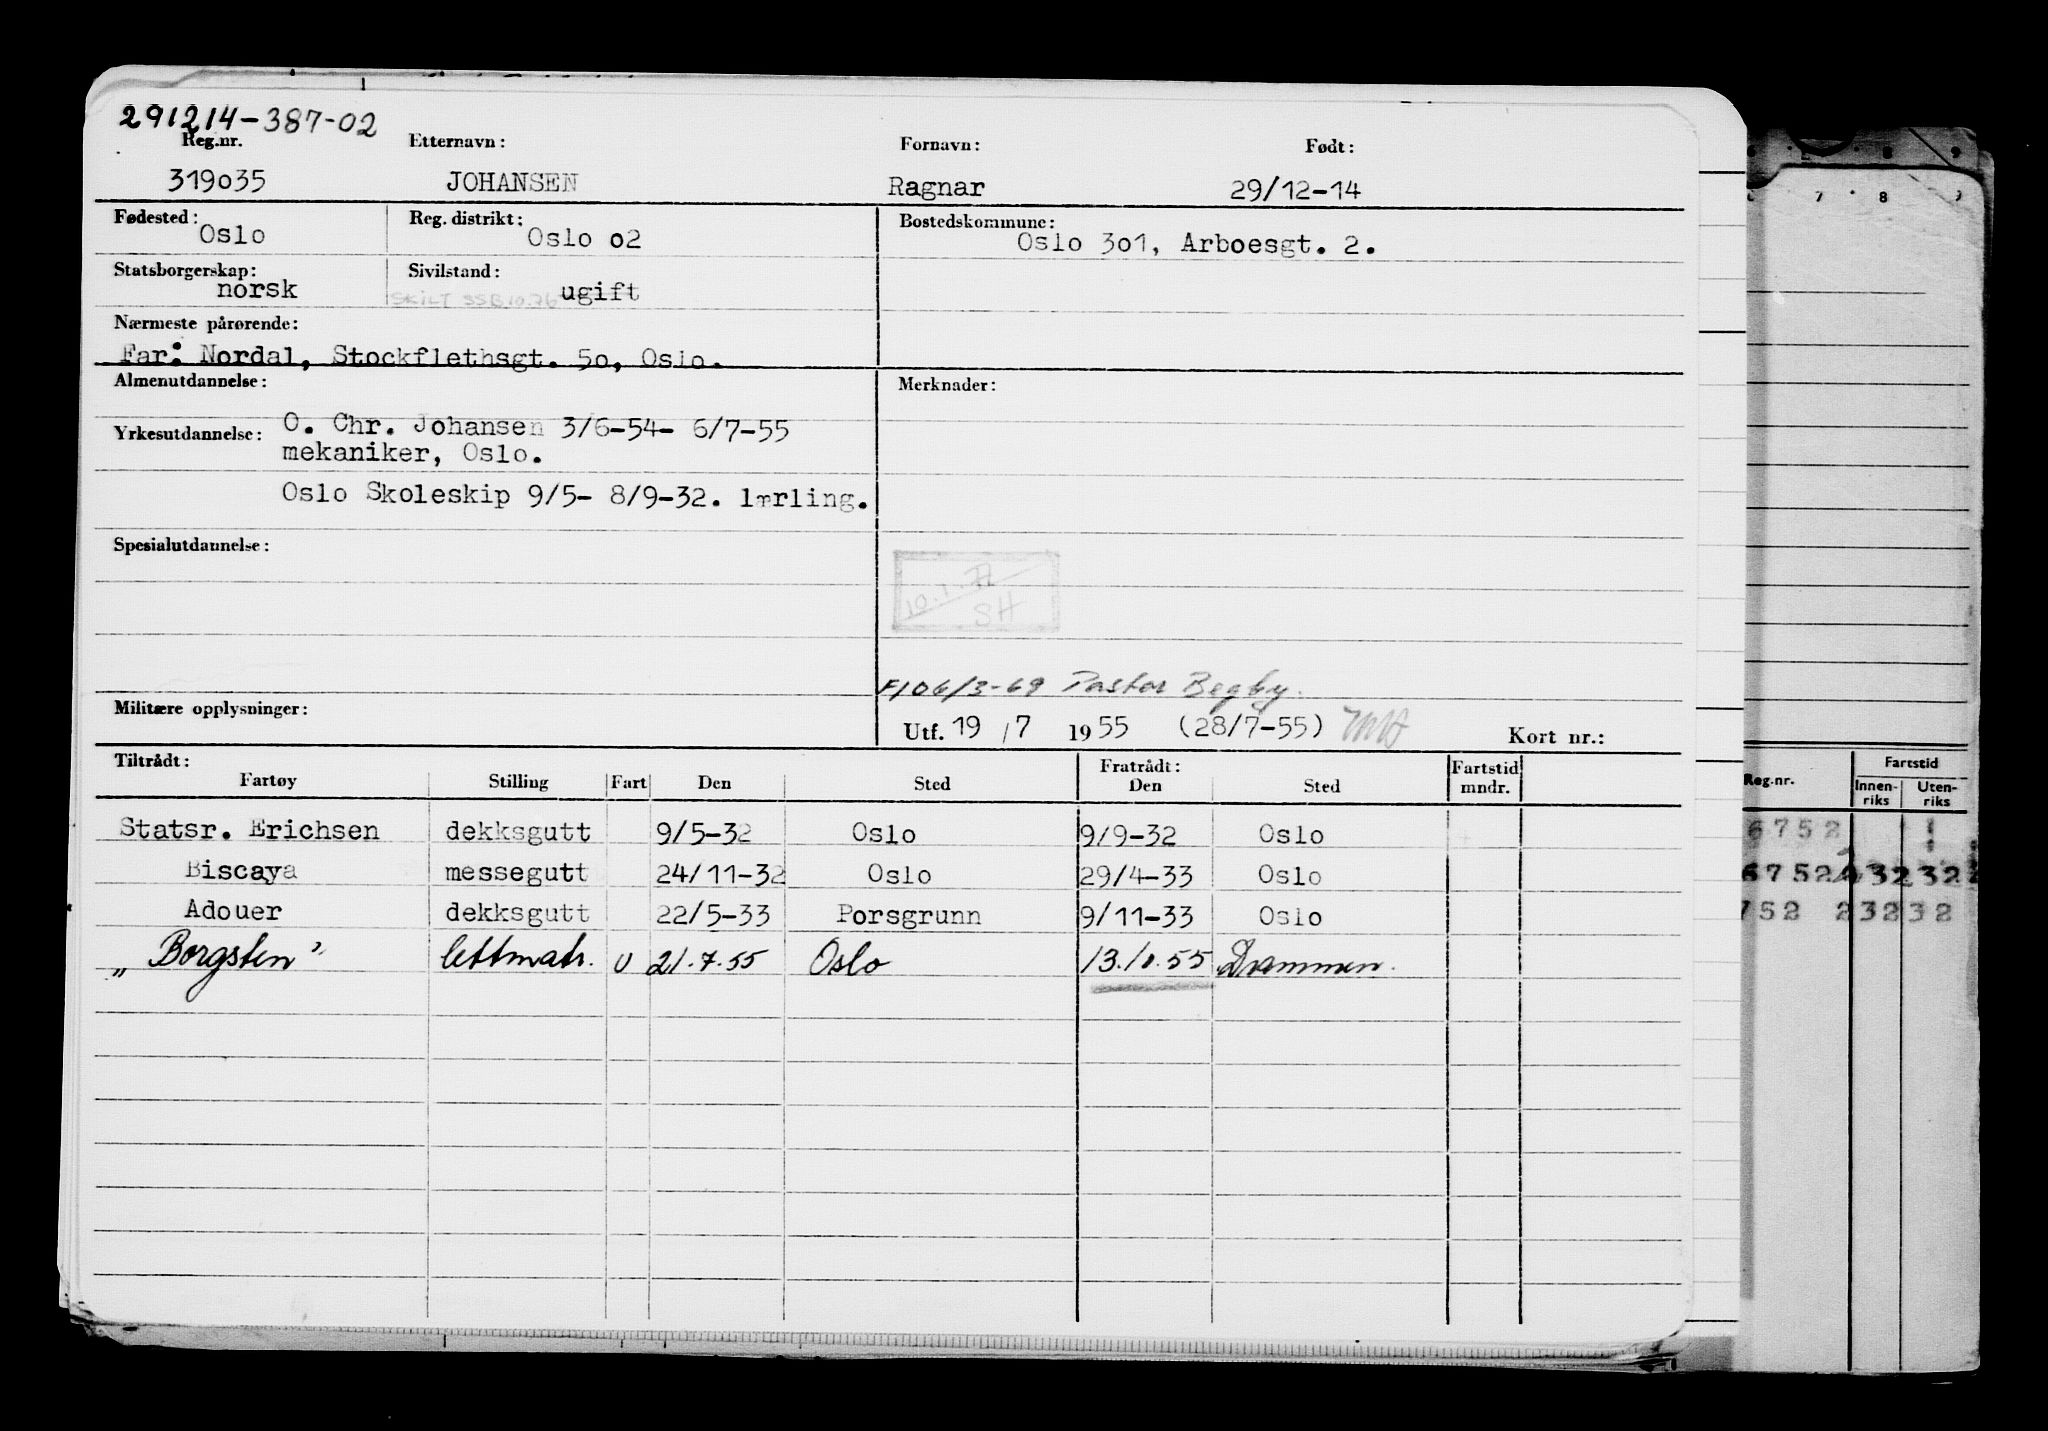 291214-387-02
Reg.nr. Etternavn: Fornavn: Født:
319035 JOHANSEN Ragnar 29/12-14
Fødested: Reg. distrikt: Bostedskommune:
Oslo Oslo 02 Oslo 301, Arboesgt. 2.
Statsborgerskap: Sivilstand:
norsk SKILT SSB 10.76 ugift
Nærmeste pårørende:
Far: Nordal, Stockflethsgt. 50, Oslo.
Almenutdannelse: Merknader:
Yrkesutdannelse: O. Chr. Johansen 3/6-54- 6/7-55
mekaniker, Oslo.
Oslo Skoleskip 9/5- 8/9-32. lærling.
Spesialutdannelse:
SH
Pastor Begby.
Militære opplysninger:
Utf. 19 /7 1955 (28/7-55) Kort nr.:
Tiltrådt: Fratrådt: Fartstid
Fartøy Stilling Fart Den Sted Den Sted mndr.
Statsr. Erichsen dekksgutt 9/5-32 Oslo 9/9-32 Oslo
Biscaya messegutt 24/11-32 Oslo 29/4-33 Oslo
Adouer dekksgutt 22/5-33 Porsgrunn 9/11-33 Oslo
„Borgsten" lettmatr. U 21.7.55 Oslo 13.10.55 Drammen.
7 8
Reg.nr. Fartstid
Innen-riks Uten-riks
6752
752 23232